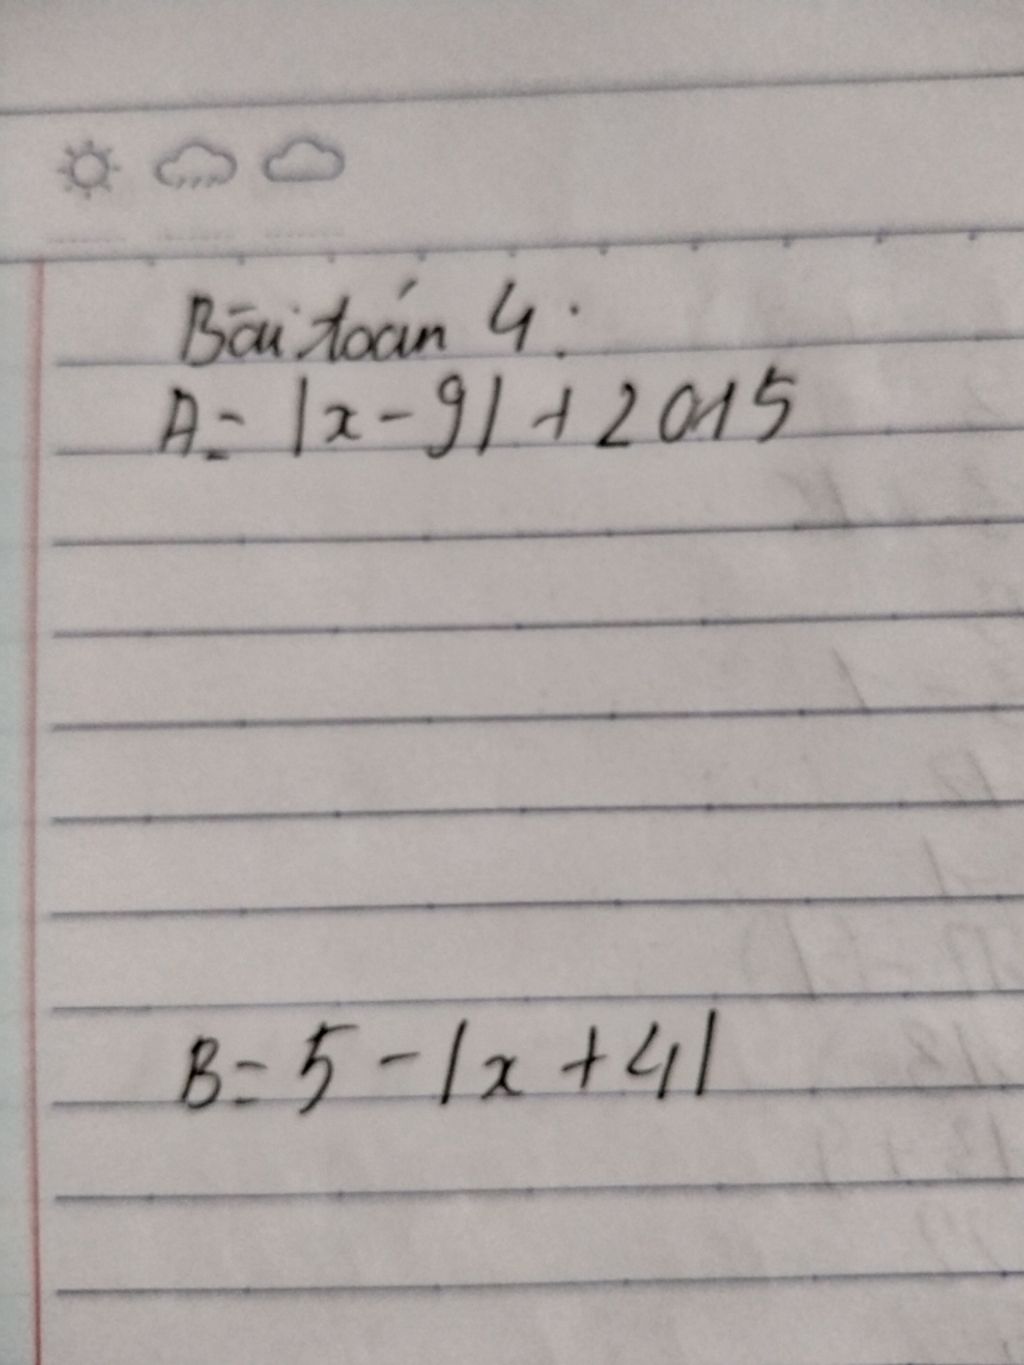 Bài toán 4:
A = |x - 9| + 2015
B = 5 - |x + 4|